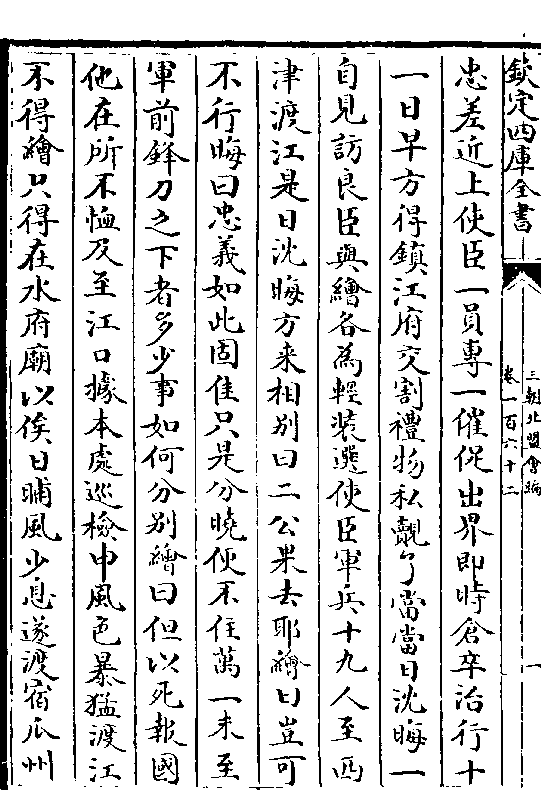 欽定四庫全書
三朝北盟會編
卷一百六十二
一
忠差近上使臣一員專一催促出界即時倉卒治行十
一日早方得鎮江府交割禮物私覿了當當日沈晦一
自見訪良臣與繪各為輕装選使臣軍兵十九人至西
津渡江是日沈晦方来相别曰二公果去耶繪曰豈可
不行晦曰忠義如此固佳只是分曉使不住萬一未至
軍前鋒刀之下者多少事如何分别繪曰但以死報國
他在所不恤及至江口據本處巡檢申風色暴猛渡江
不得繪只得在水府廟以俟日晡風少息遂渡宿瓜州